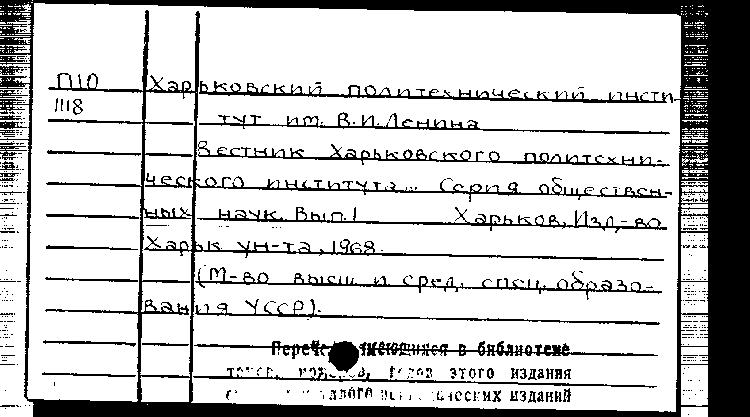 П10 Харьковский политехнический инсти
1118
тут им. В.И.Ленина
Вестник Харьковского политехни-
ческого института... Серия обществен-
ных наук. Вып.1 Харьков, Изд-во
Харьк ун-та, 1968.
(М-во высш и сред. спец. образо-
вания УССР).
имеющихся в библиотеке
годов этого издания